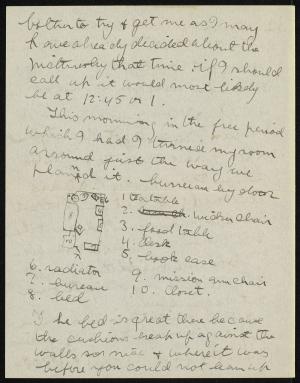 bother to try & get me as I may
have already decided about the
matter by that time. if I should
call up it would most likely
be at 12:45 or 1.
This morning in the free period
which I had I turned my room
around just the way we
planned it. bureau by door
1 table
2. wicker chair
3. food table
4. desk
5. book case
6. radiator
7. bureau
8. bed
9. mission arm chair
10. closet.
The bed is great there because
the cushions heap up against the
walls so nice & where it was
before you could not lean up